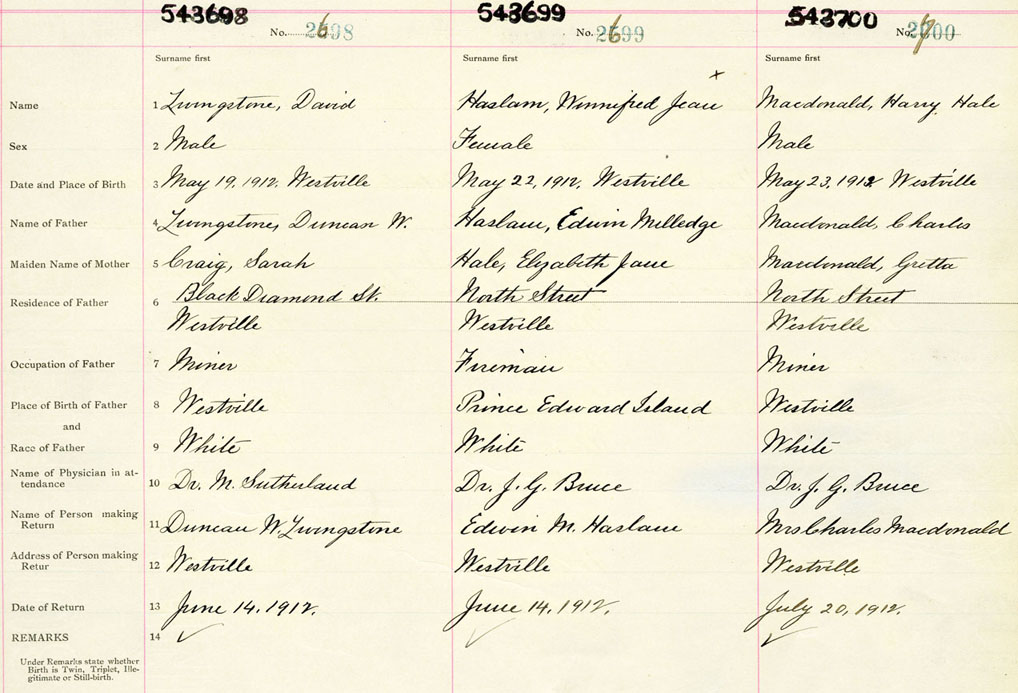 543698 543699 543700
No. 2698 No. 2699 No.
Surname first Surname first Surname first
Name 1 Livingstone, David Haslam, Winnifred Jean Macdonald, Harry Hale
Sex 2 Male Female Male
Date and Place of Birth 3 May 19, 1912. Westville May 22, 1912. Westville May 23, 1912 Westville
Name of Father 4 Livingstone, Duncan W. Haslam, Edwin Milledge Macdonald, Charles
Maiden Name of Mother 5 Craig, Sarah Hale, Elizabeth Jane Macdonald, Gretta
Residence of Father 6 Black Diamond St. North Street North Street
Westville Westville Westville
Occupation of Father 7 Miner Fireman Miner
Place of Birth of Father 8 Westville Prince Edward Island Westville
and
Race of Father 9 White White White
Name of Physician in at-
tendance 10 Dr. M. Sutherland Dr. J. G. Bruce Dr. J. G. Bruce
Name of Person making
Return 11 Duncan W. Livingstone Edwin M. Haslam Mrs Charles Macdonald
Address of Person making
Retur 12 Westville Westville Westville
Date of Return 13 June 14, 1912. June 14, 1912. July 20, 1912.
REMARKS 14
Under Remarks state whether
Birth is Twin, Triplet, Ille-
gitimate or Still-birth.